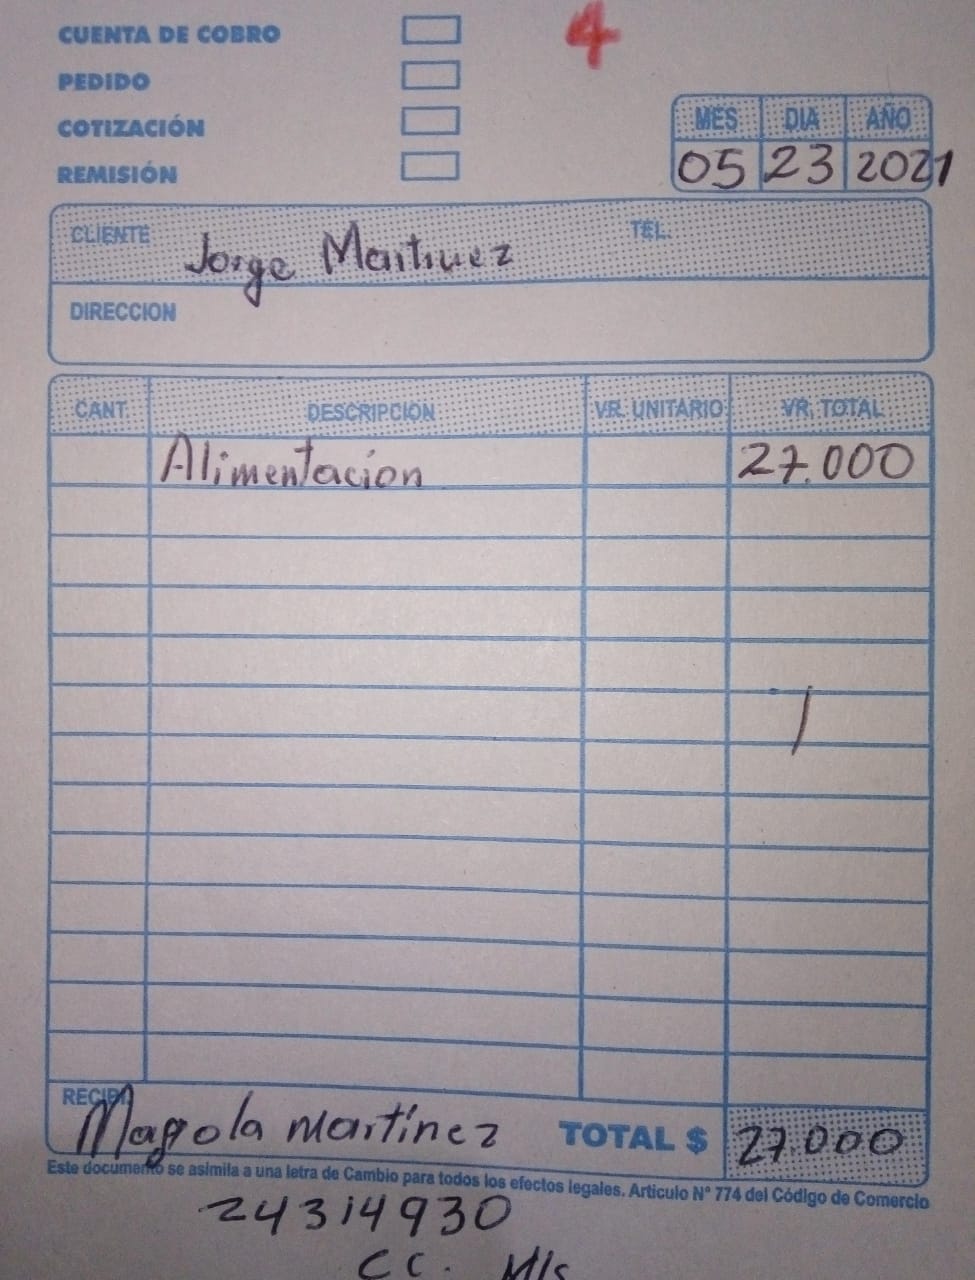 CUENTA DE COBRO
4
PEDIDO
COTIZACIÓN
REMISIÓN
MES DIA AÑO
05 23 2021
CLIENTE Jorge Martinez TEL.
DIRECCION
CANT. DESCRIPCION VR. UNITARIO VR. TOTAL
Alimentacion 27.000
RECIBI Magola Martínez TOTAL $ 27.000
Este documento se asimila a una letra de Cambio para todos los efectos legales. Articulo N° 774 del Código de Comercio
24314930
CC. M/s